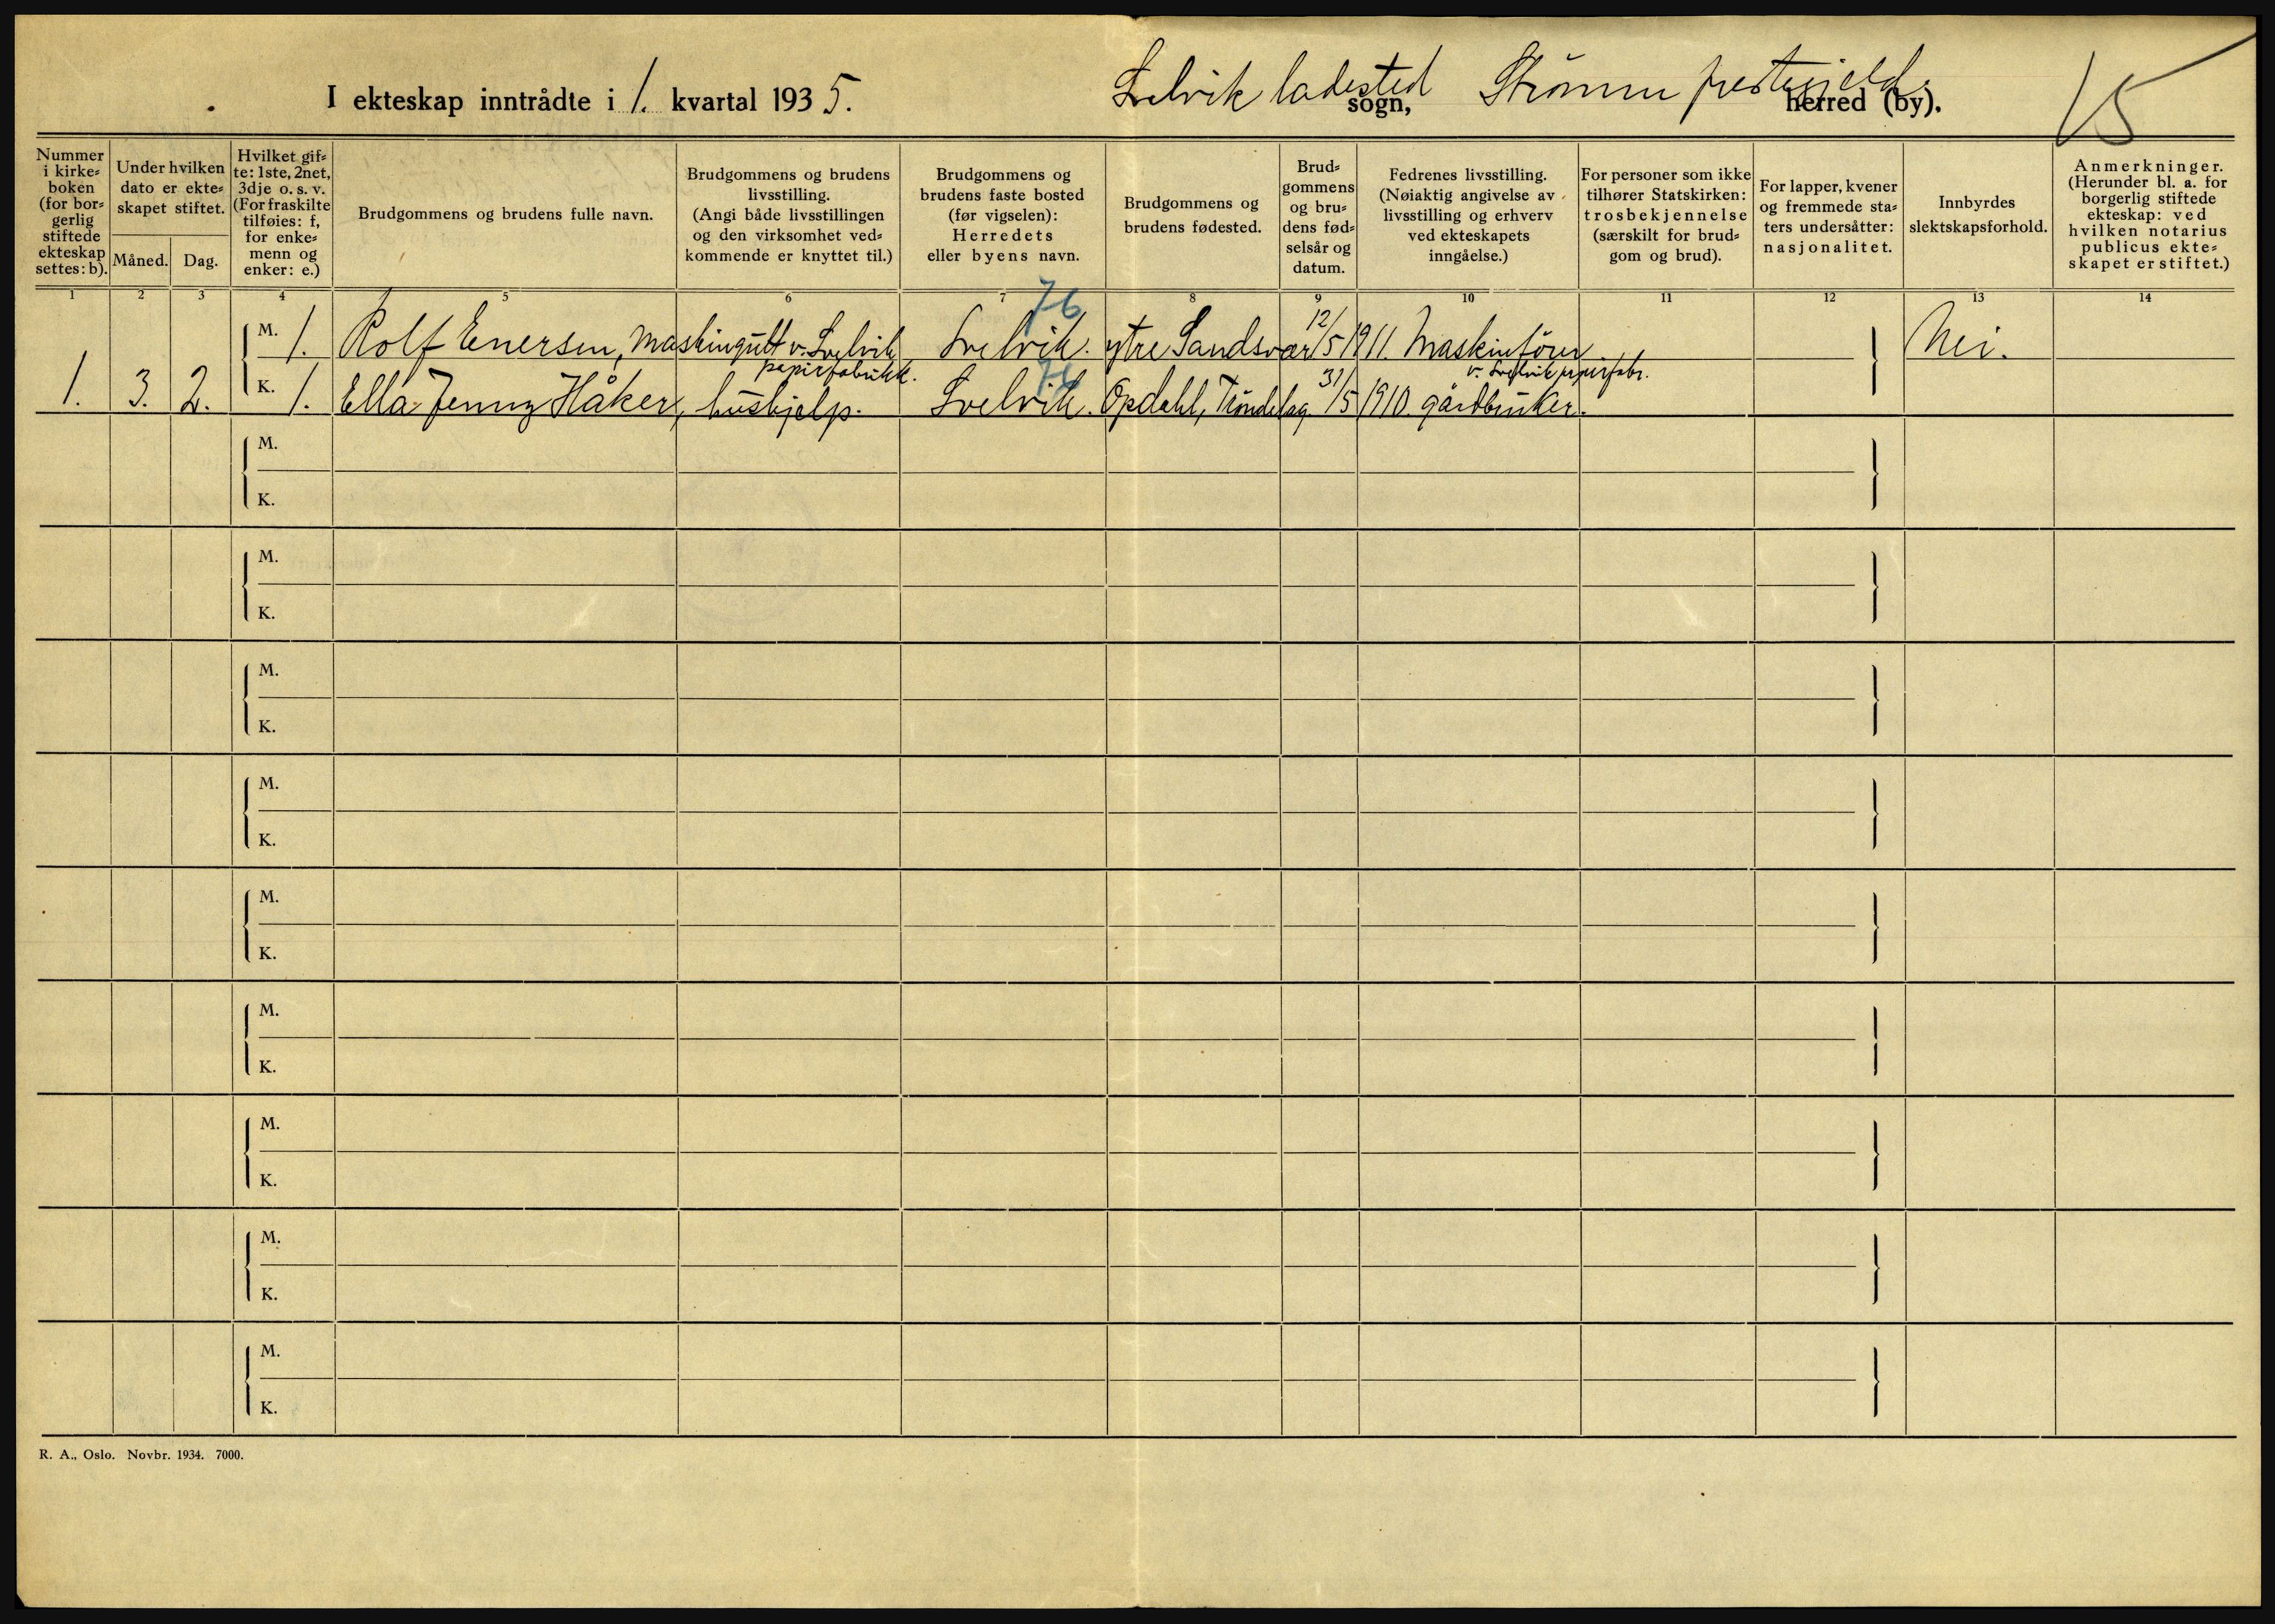 I ekteskap inntrådte i 1. kvartal 1935. Svelvik ladested sogn, Strømm prestegjeld herred (by). 15
Nummer i kirke= boken (for bor= gerlig stiftede ekteskap settes: b).
Under hvilken dato er ekte= skapet stiftet.
Måned. Dag.
Hvilket gif= te: 1ste, 2net, 3dje o. s. v. (For fraskilte tilføies: f, for enke= menn og enker: e.)
Brudgommens og brudens fulle navn.
Brudgommens og brudens livsstilling. (Angi både livsstillingen og den virksomhet ved= kommende er knyttet til.)
Brudgommens og brudens faste bosted (før vigselen): Herredets eller byens navn.
Brudgommens og brudens fødested.
Brud= gommens og bru= dens fød= selsår og datum.
Fedrenes livsstilling. (Nøiaktig angivelse av livsstilling og erhverv ved ekteskapets inngåelse.)
For personer som ikke tilhører Statskirken: trosbekjennelse (særskilt for brud= gom og brud).
For lapper, kvener og fremmede sta= ters undersåtter: nasjonalitet.
Innbyrdes slektskapsforhold.
Anmerkninger. (Herunder bl. a. for borgerlig stiftede ekteskap: ved hvilken notarius publicus ekte= skapet er stiftet.)
1 2 3 4 5 6 7 8 9 10 11 12 13 14
76
M. 1. Rolf Enersen, maskingutt v. Svelvik papirfabrikk. Svelvik. ytre Sandsvær 12/5 1911. Maskinfører v. Svelvik papirfabr. Nei.
76
1. 3. 2. K. 1. Ella Jenny Håker, hushjelp. Svelvik. Opdahl, Trøndelag 31/5 1910. gårdbruker.
M.
K.
M.
K.
M.
K.
M.
K.
M.
K.
M.
K.
M.
K.
M.
K.
M.
K.
R. A., Oslo. Novbr. 1934. 7000.